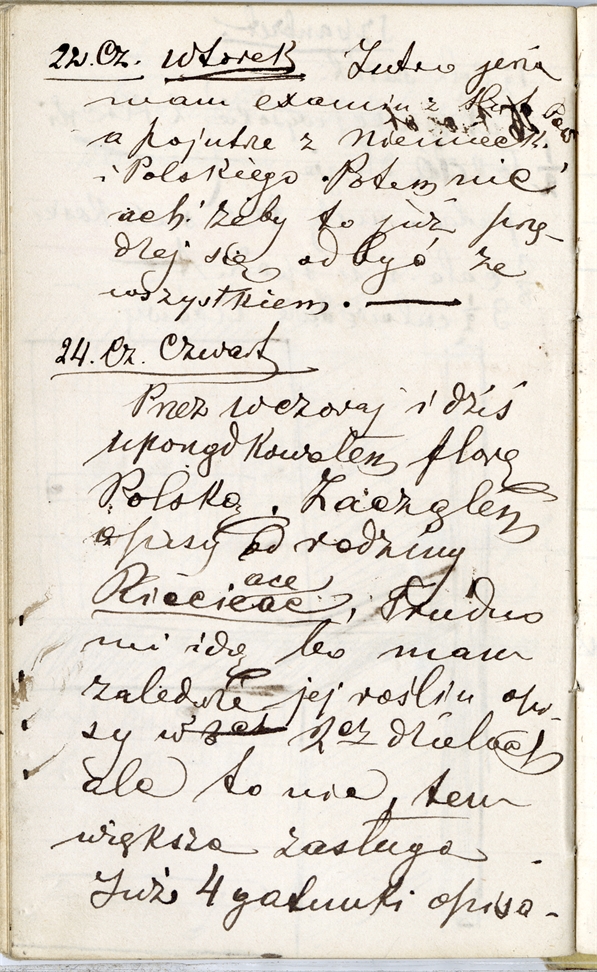 22. Cz. wtorek Jutro
mam examin z
a pojutrze z Niemieck.
i Polskiego. Potem nic
ach! żeby to już prę-
dzej się odbyć ze
wszystkiem. —
24. Cz. Czwart
Przez wczoraj i dziś
uporządkowałem florę
Polską. Zacząłem
opisy od rodziny
Ricciaceae, Trudno
mi idą bo mam
zaledwie jej roślin opi-
sy w dziełach
ale to nie, tem
większa zasługa
Już 4 gatunki opisa-